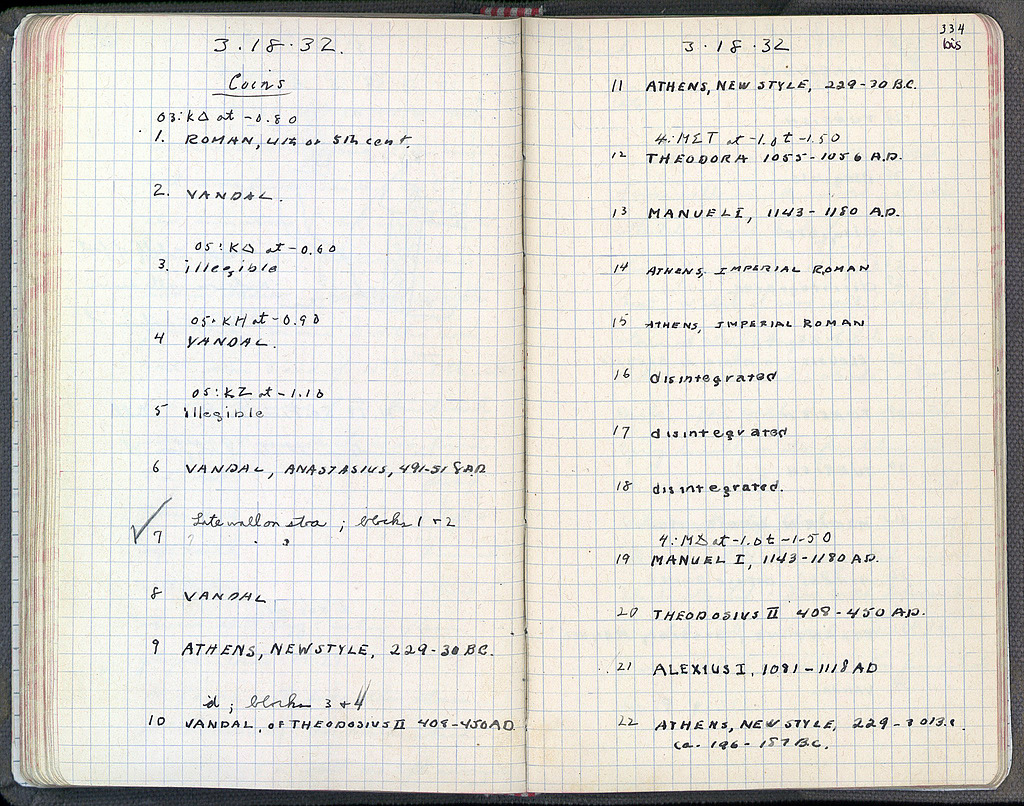 3.18.32.
Coins
03:ΚΔ at -0.80
1. ROMAN, 4th or 5th cent.
2. VANDAL.
05:ΚΔ at -0.60
3. illegible
05:ΚΗ at -0.90
4 VANDAL.
05:ΚΖ at -1.10
5 illegible
6 VANDAL, ANASTASIUS, 491-518 A.D.
Late wall on stoa ; blocks 1 + 2
7 ?
8 VANDAL
9 ATHENS, NEW STYLE, 229-30 B.C.
id ; blocks 3 + 4
10 VANDAL, OF THEODOSIUS II 408-450 A.D.
334
bis
3.18.32
11 ATHENS, NEW STYLE, 229-30 B.C.
4:ΜΣΤ at -1.0 t -1.50
12 THEODORA 1055-1056 A.D.
13 MANUEL I, 1143-1180 A.D.
14 ATHENS, IMPERIAL ROMAN
15 ATHENS, IMPERIAL ROMAN
16 disintegrated
17 disintegrated
18 disintegrated.
4:ΜΔ at -1.0 t -1.50
19 MANUEL I, 1143-1180 A.D.
20 THEODOSIUS II 408-450 A.D.
21 ALEXIUS I, 1081-1118 AD
22 ATHENS, NEW STYLE, 229-30 B.C.
ca. 196-187 B.C.